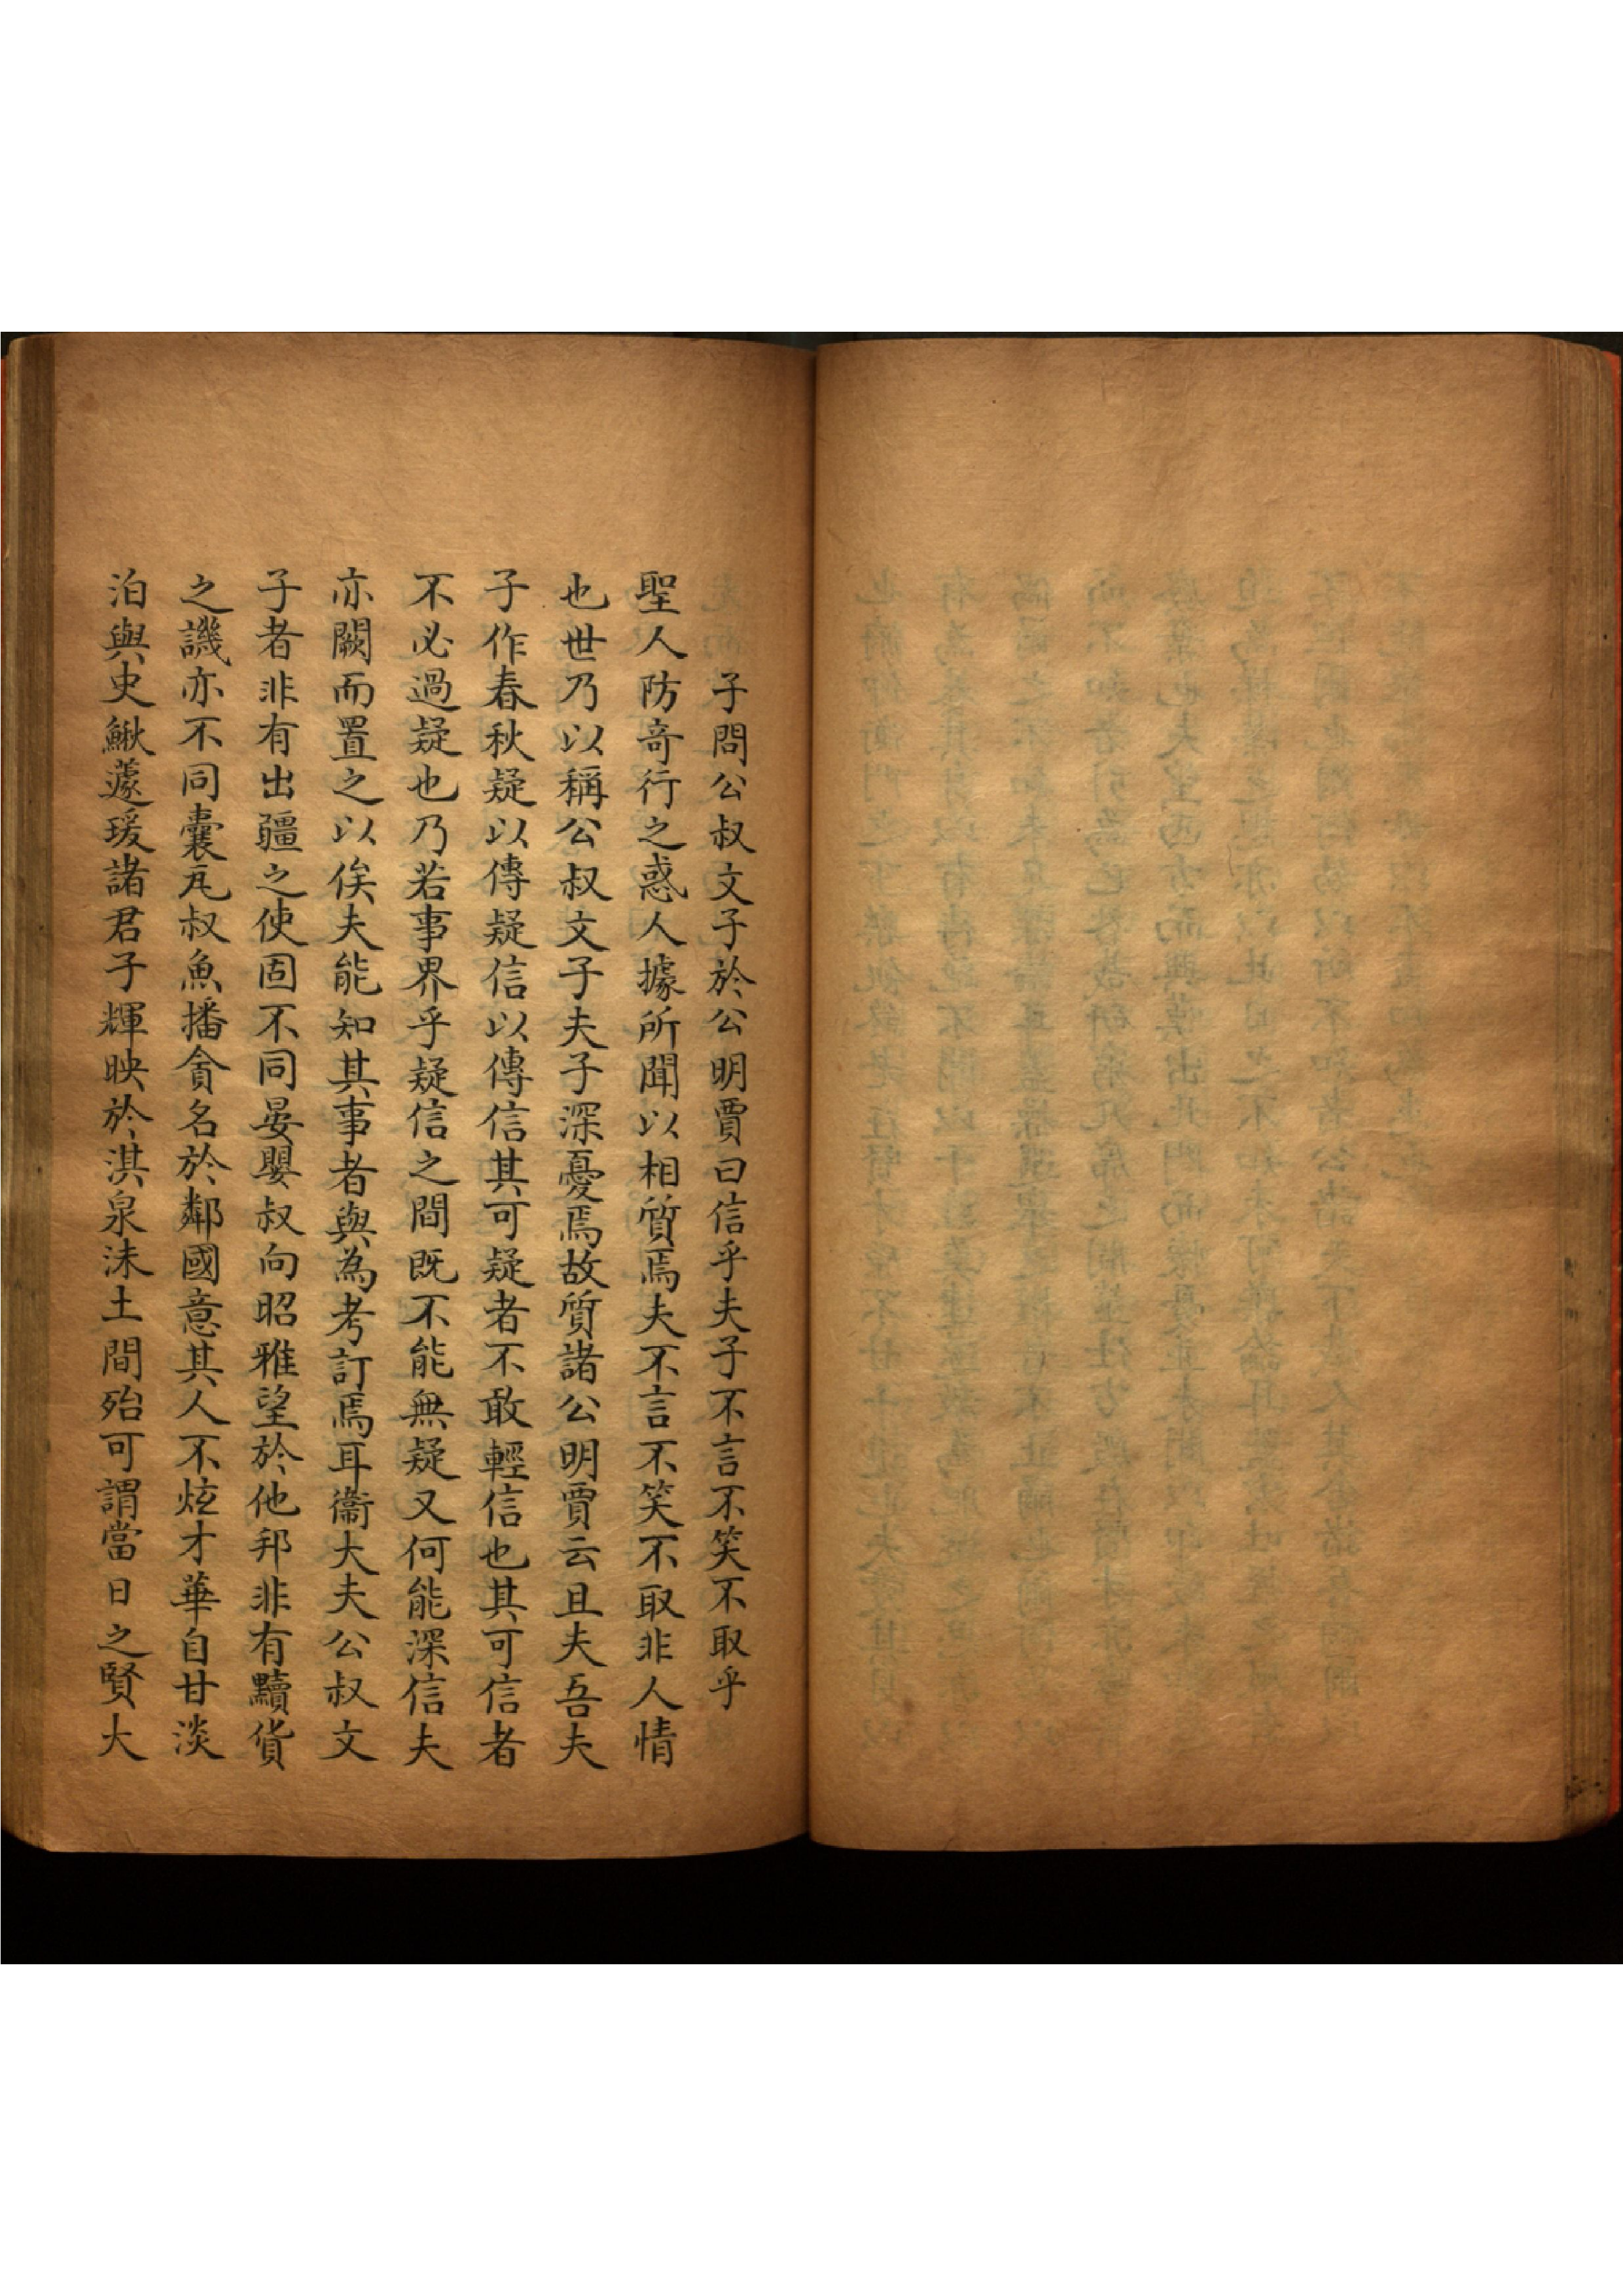 子問公叔文子於公明賈曰信乎夫子不言不笑不取乎
聖人防奇行之惑人據所聞以相質焉夫不言不笑不取非人情
也世乃以稱公叔文子夫子深憂焉故質諸公明賈云且夫吾夫
子作春秋疑以傳疑信以傳信其可疑者不敢輕信也其可信者
不必過疑也乃若事界乎疑信之間既不能無疑又何能深信夫
亦闕而置之以俟夫能知其事者與為考訂焉耳衞大夫公叔文
子者非有出疆之使固不同晏嬰叔向昭雅望於他邦非有黷貨
之譏亦不同囊瓦叔魚播貪名於鄰國意其人不炫才華自甘淡
泊與史鰍蘧瑗諸君子輝映於淇泉沬土間殆可謂當日之賢大